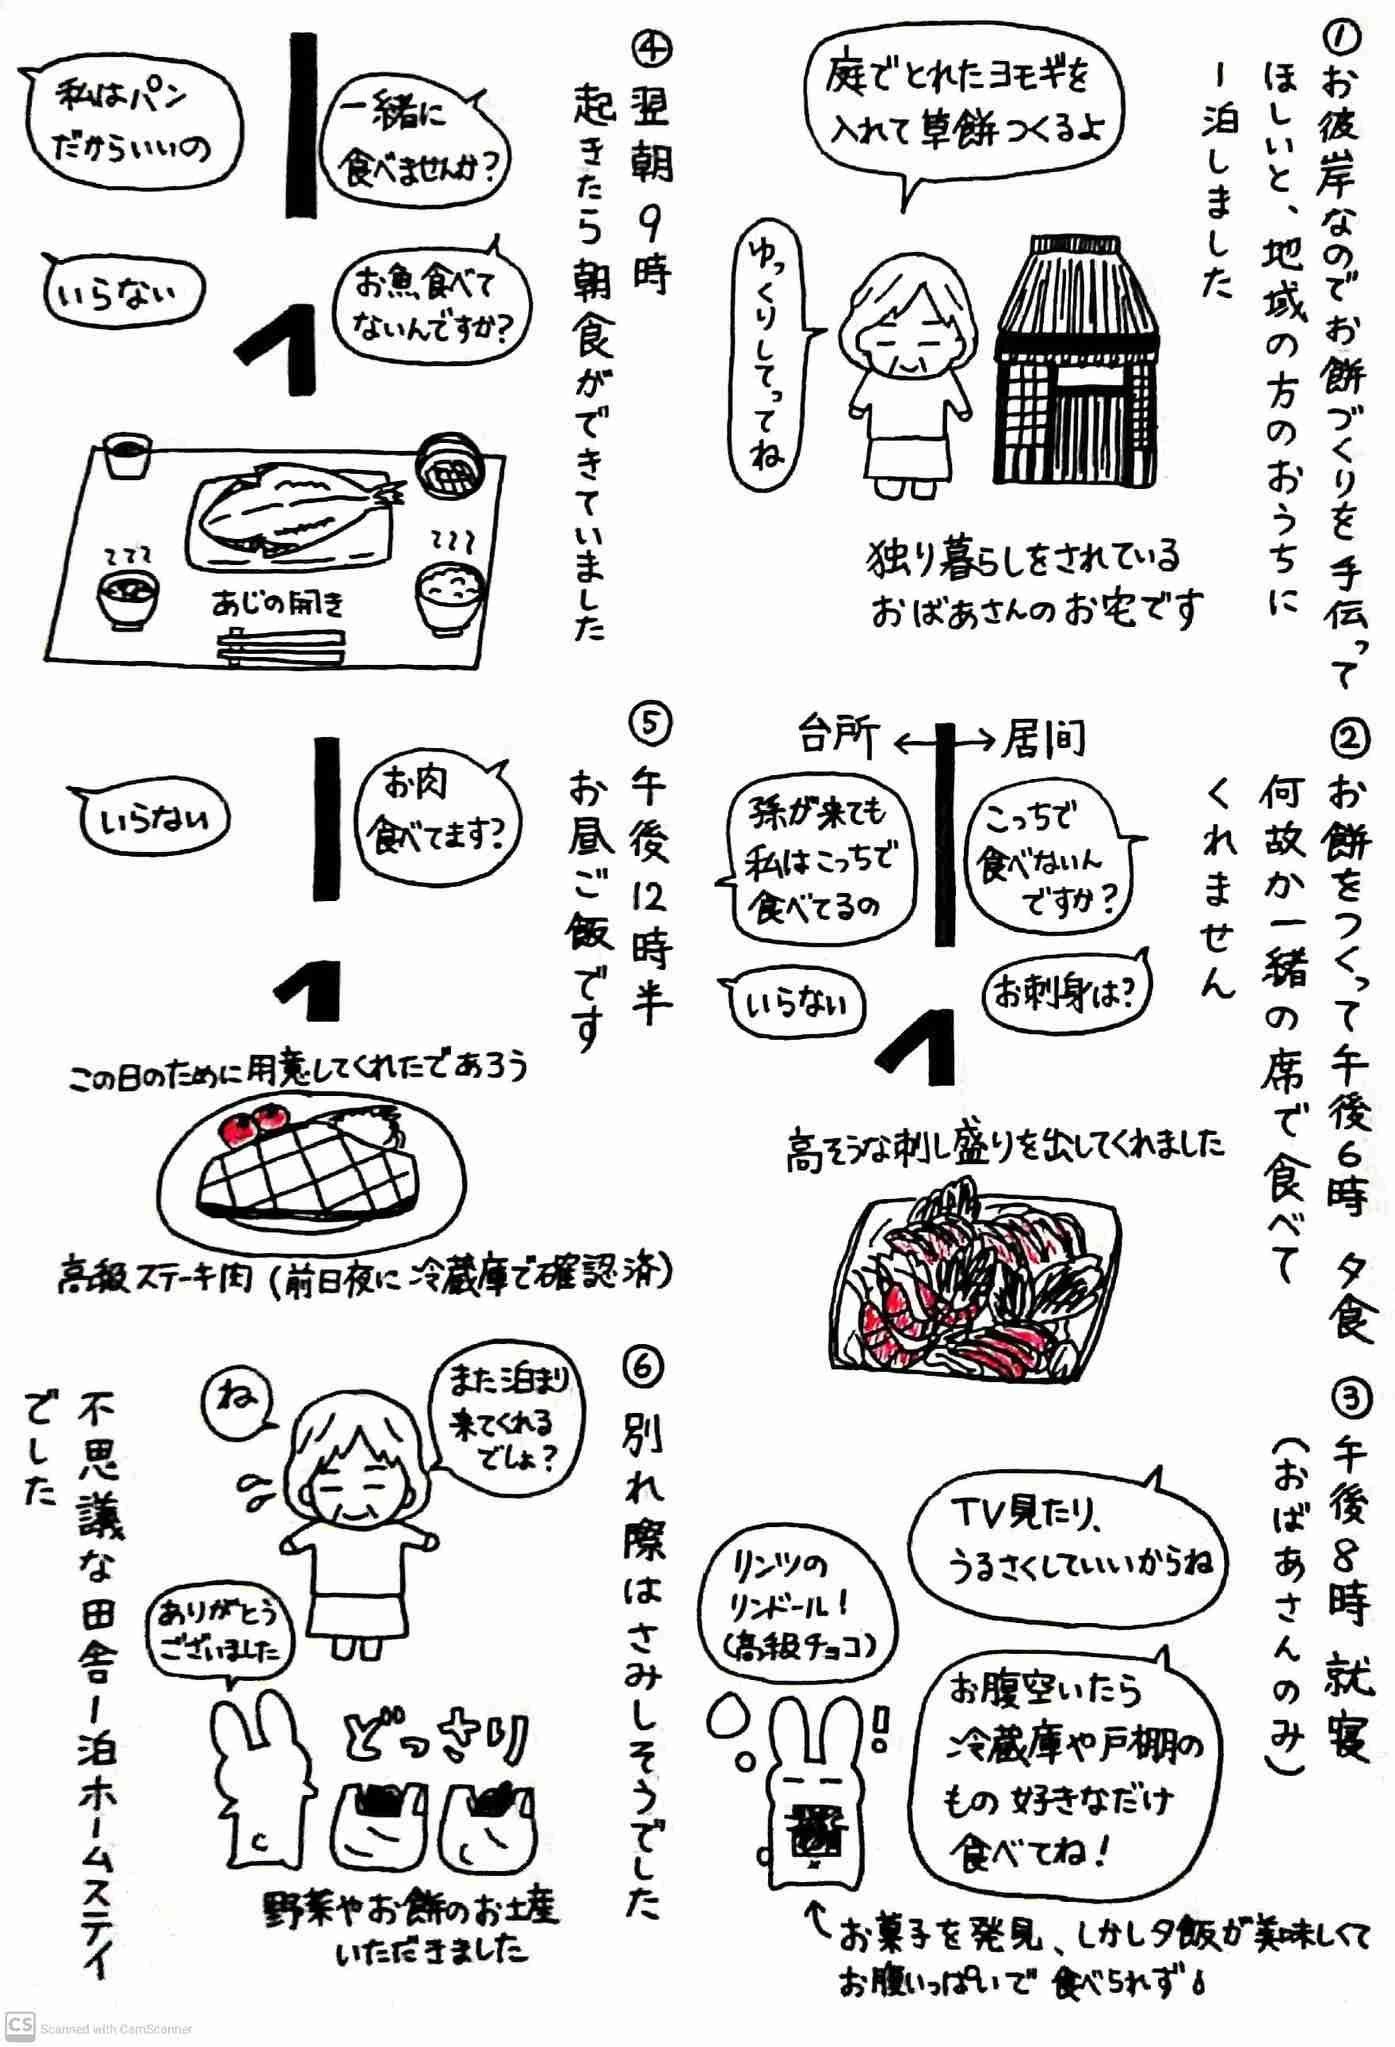 ①お彼岸なのでお餅づくりを手伝って
ほしいと、地域の方のおうちに
一泊しました
庭でとれたヨモギを
入れて草餅つくるよ
ゆっくりしてってね
独り暮らしをされている
おばあさんのお宅です
②お餅をつくって午後6時 夕食
何故か一緒の席で食べて
くれません
台所 ↔ 居間
こっちで
食べないん
ですか?
孫が来ても
私はこっちで
食べてるの
お刺身は?
いらない
高そうな刺し盛りを出してくれました
③午後8時 就寝
(おばあさんのみ)
TV見たり、
うるさくしていいからね
お腹空いたら
冷蔵庫や戸棚の
もの好きなだけ
食べてね!
リンツの
リンドール!
(高級チョコ)
!!
お菓子を発見、しかし夕飯が美味しくて
お腹いっぱいで食べられず
④翌朝9時
起きたら朝食ができていました
一緒に
食べませんか?
私はパン
だからいいの
お魚食べて
ないんですか?
いらない
あじの開き
⑤午後12時半
お昼ご飯です
お肉
食べてます?
いらない
この日のために用意してくれたであろう
高級ステーキ肉(前日夜に冷蔵庫で確認済)
⑥別れ際はさみしそうでした
また泊まり
来てくれる
でしょ?
ね
ありがとう
ございました
どっさり
野菜やお餅のお土産
いただきました
不思議な田舎一泊ホームステイ
でした
CS Scanned with CamScanner